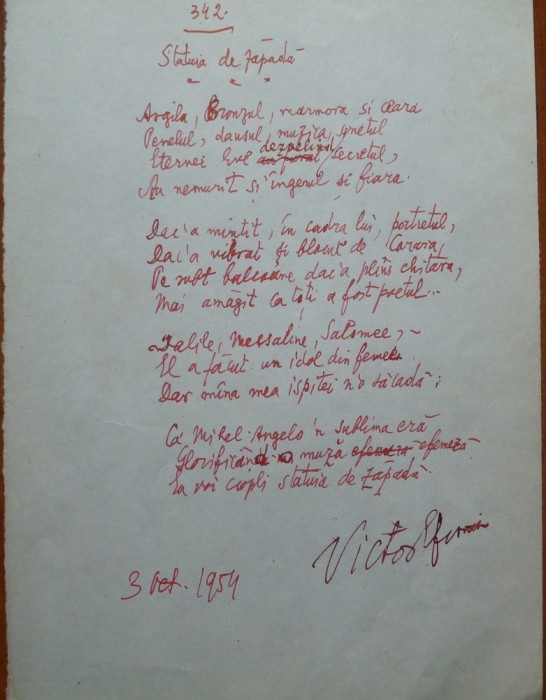 342.
Statuia de zăpadă
Argila, Bronzul, marmora si ceara
Penelul, dansul, muzica, sonetul
Eternei Eve dezvelind secretul,
Au nemurit și îngerul si fiara.
Dac'a mințit, în cadra lui, portretul,
Dac'a vibrat și blocul de Carara,
Pe subt balcoane dac'a plîns chitara,
Mai amăgit ca toți a fost poetul...
Dalile, Messaline, Salomee, -
El a făcut un idol din femee.
Dar mîna mea ispitei n'o să cadă;
Ca Michel-Angelo 'n sublima eră
Glorificând o muză efemeră
Ia voi ciopli statuia de zăpadă.
Victor Eftimiu
3 Oct. 1954